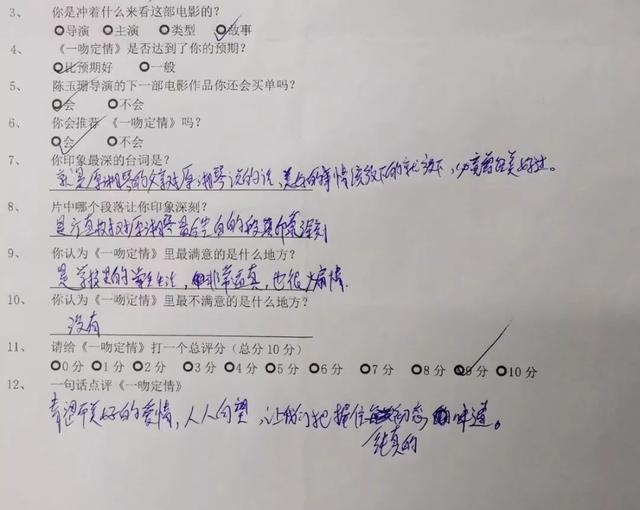 3、 你是冲着什么来看这部电影的?
导演 主演 类型 故事
4、 《一吻定情》是否达到了你的预期?
比预期好 一般
5、 陈玉珊导演的下一部电影作品你还会买单吗?
会 不会
6、 你会推荐《一吻定情》吗?
会 不会
7、 你印象最深的台词是?
就是原湘琴的父亲对原湘琴说的话,美好的事情该放下的就放下,
8、 片中哪个段落让你印象深刻?
是江直树对原湘琴告白的
9、 你认为《一吻定情》里最满意的是什么地方?
是学校里的学生生活,非常逼真,也很煽情.
10、 你认为《一吻定情》里最不满意的是什么地方?
没有
11、 请给《一吻定情》打一个总评分(总分 10 分)
0 分 1 分 2 分 3 分 4 分 5 分 6 分 7 分 8 分 9 分 10 分
12、 一句话点评《一吻定情》
美好的爱情,人人向望,让我们把握住初恋味道。
纯真的